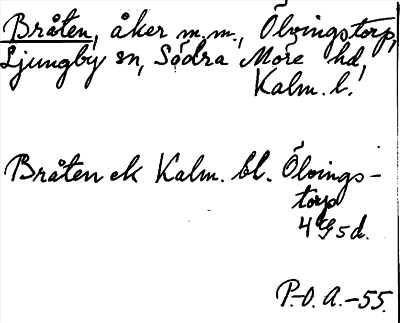 Bråten, åker m.m., Ölvingstorp,
Ljungby sn, Södra Möre hd,
Kalm. l.
Bråten ek Kalm. bl. Ölvings-
torp
4 G 5 d.
P.-O. A. -55.